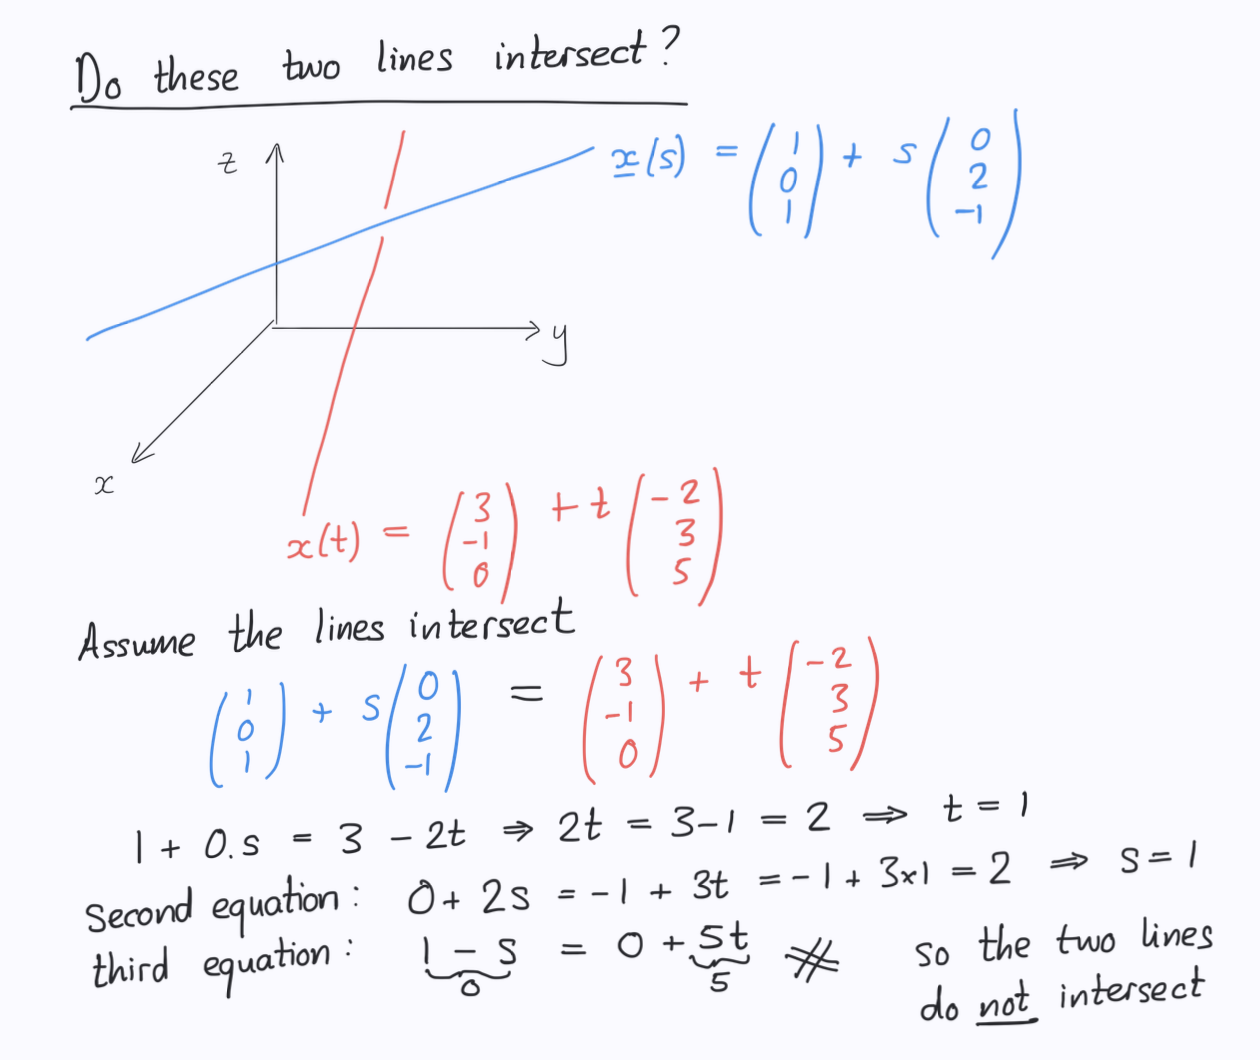 Do these two lines intersect?
z
x(s) = (1 0 1) + s (0 2 -1)
y
x
x(t) = (3 -1 0) + t (-2 3 5)
Assume the lines intersect
(1 0 1) + s (0 2 -1) = (3 -1 0) + t (-2 3 5)
1 + 0.s = 3 - 2t ⇒ 2t = 3-1 = 2 ⇒ t = 1
Second equation: 0 + 2s = -1 + 3t = -1 + 3×1 = 2 ⇒ s = 1
third equation: 1 - s = 0 + 5t so the two lines
0 5 do not intersect